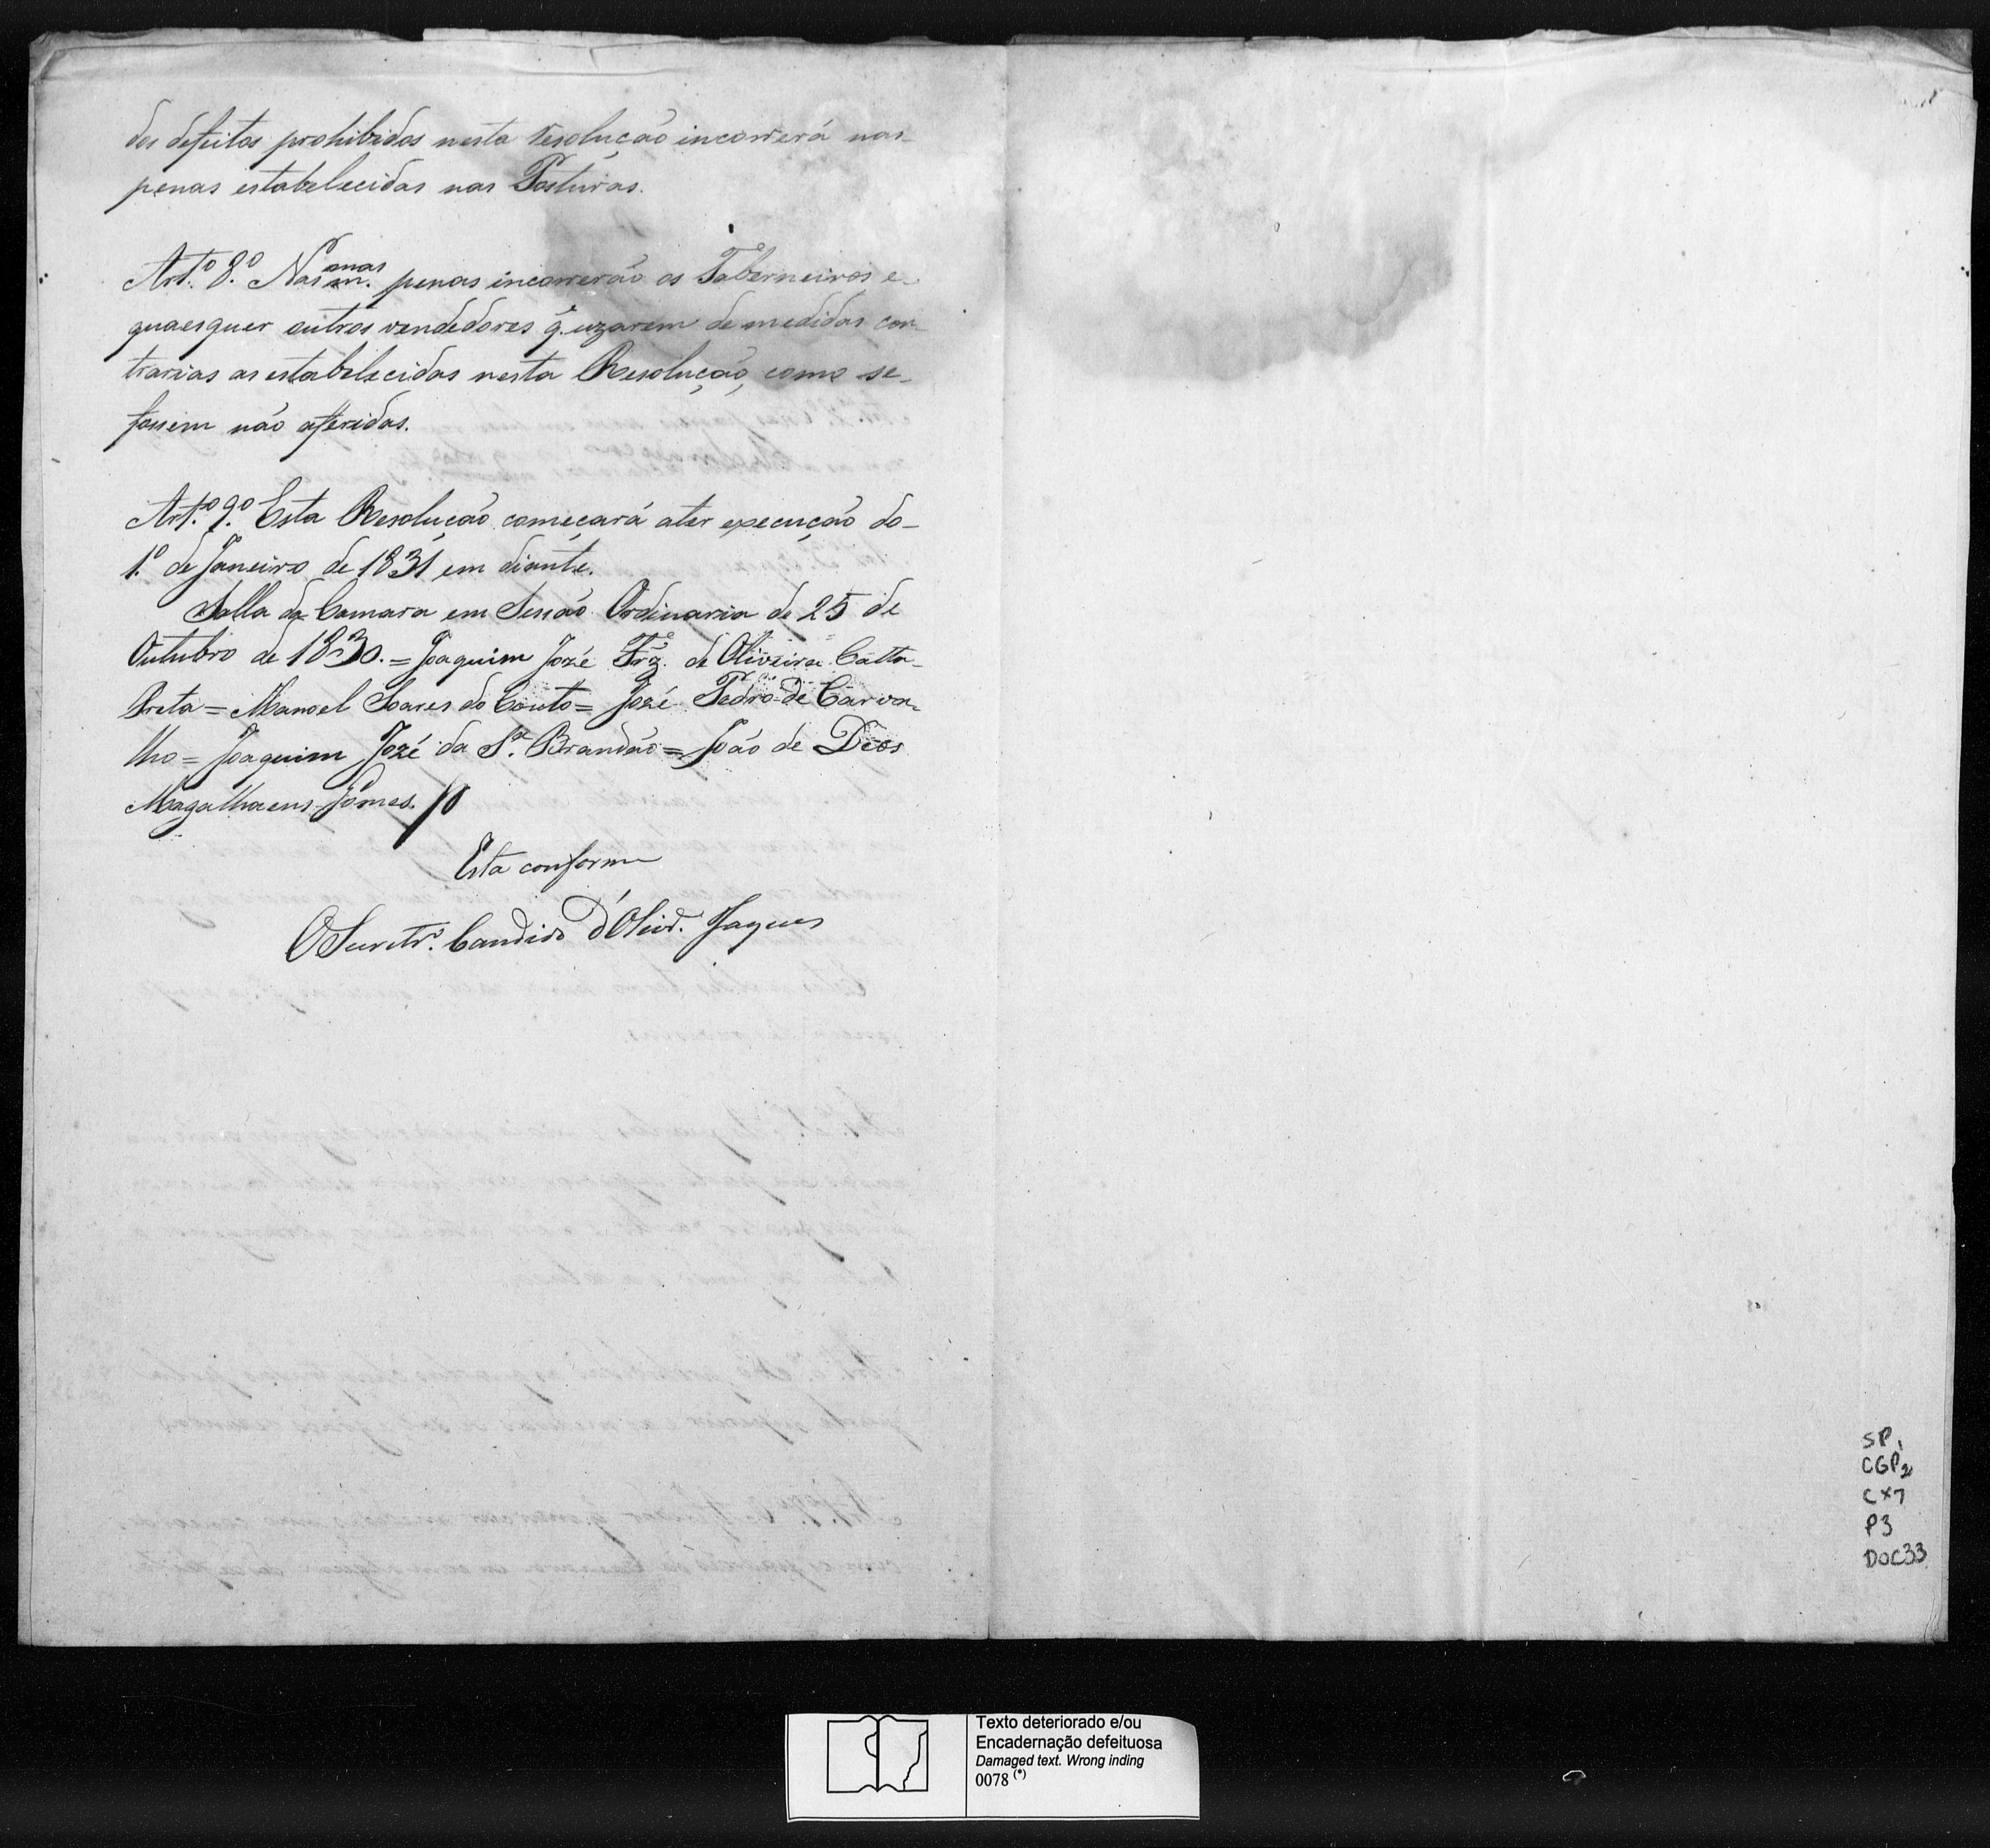 dos defeitos prohibidos nesta Resolução incorrerá nas
penas estabelecidas nas Posturas.
Art.º 8.º Nas m.mas penas incorrerão os Taberneiros e
quaesquer outros vendedores q. uzarem de medidas con-
trarias as estabelecidas nesta Resolução, como se
fossem não aferidas.
Art.º 9.º Esta Resolução começará ater execução do
1.º de Janeiro de 1831 em diante.
Salla da Camara em Sessão Ordinaria de 25 de
Outubro de 1830. = Joaquim Jozé Frz. de Oliveira Catta-
Preta = Manoel Soares do Couto = Jozé Pedro de Carva-
lho = Joaquim Jozé da S.ª Brandão = João de Deos
Magalhaens Gomes.
Esta conforme
O Secretr.º Candido d'Oliv.ra Jaques
SP1
CGP2
CX7
P3
DOC33
Texto deteriorado e/ou
Encadernação defeituosa
Damaged text. Wrong inding
0078 (*)